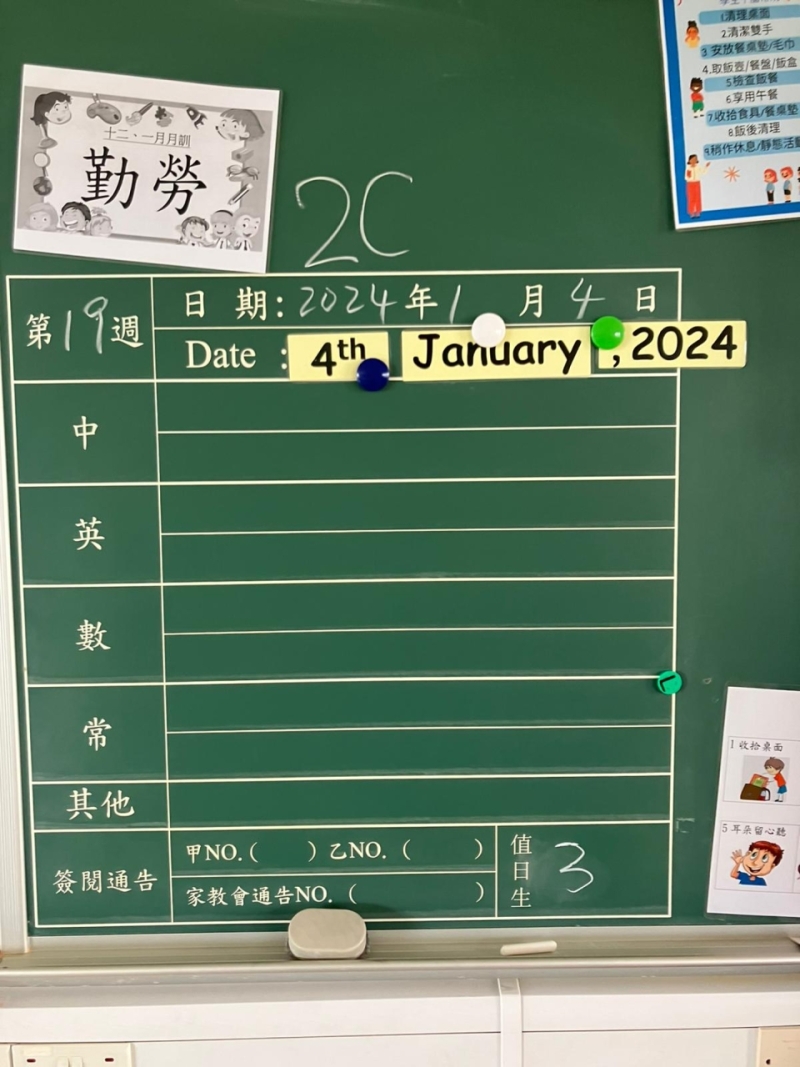 十二、一月月訓
勤勞
1清理桌面
2.清潔雙手
3 安放餐桌墊/毛巾
4.取飯壺/餐盤/飯盒
5檢查飯餐
6.享用午餐
7.收拾食具/餐桌墊
8.飯後清理
9.稍作休息/靜態活動
2C
第19週
日 期: 2024年1月4日
Date : 4th January, 2024
中
英
數
常
其他
簽閱通告
甲NO.( ) 乙NO. ( )
家教會通告NO. ( )
值日生 3
1 收拾桌面
5 耳朵留心聽